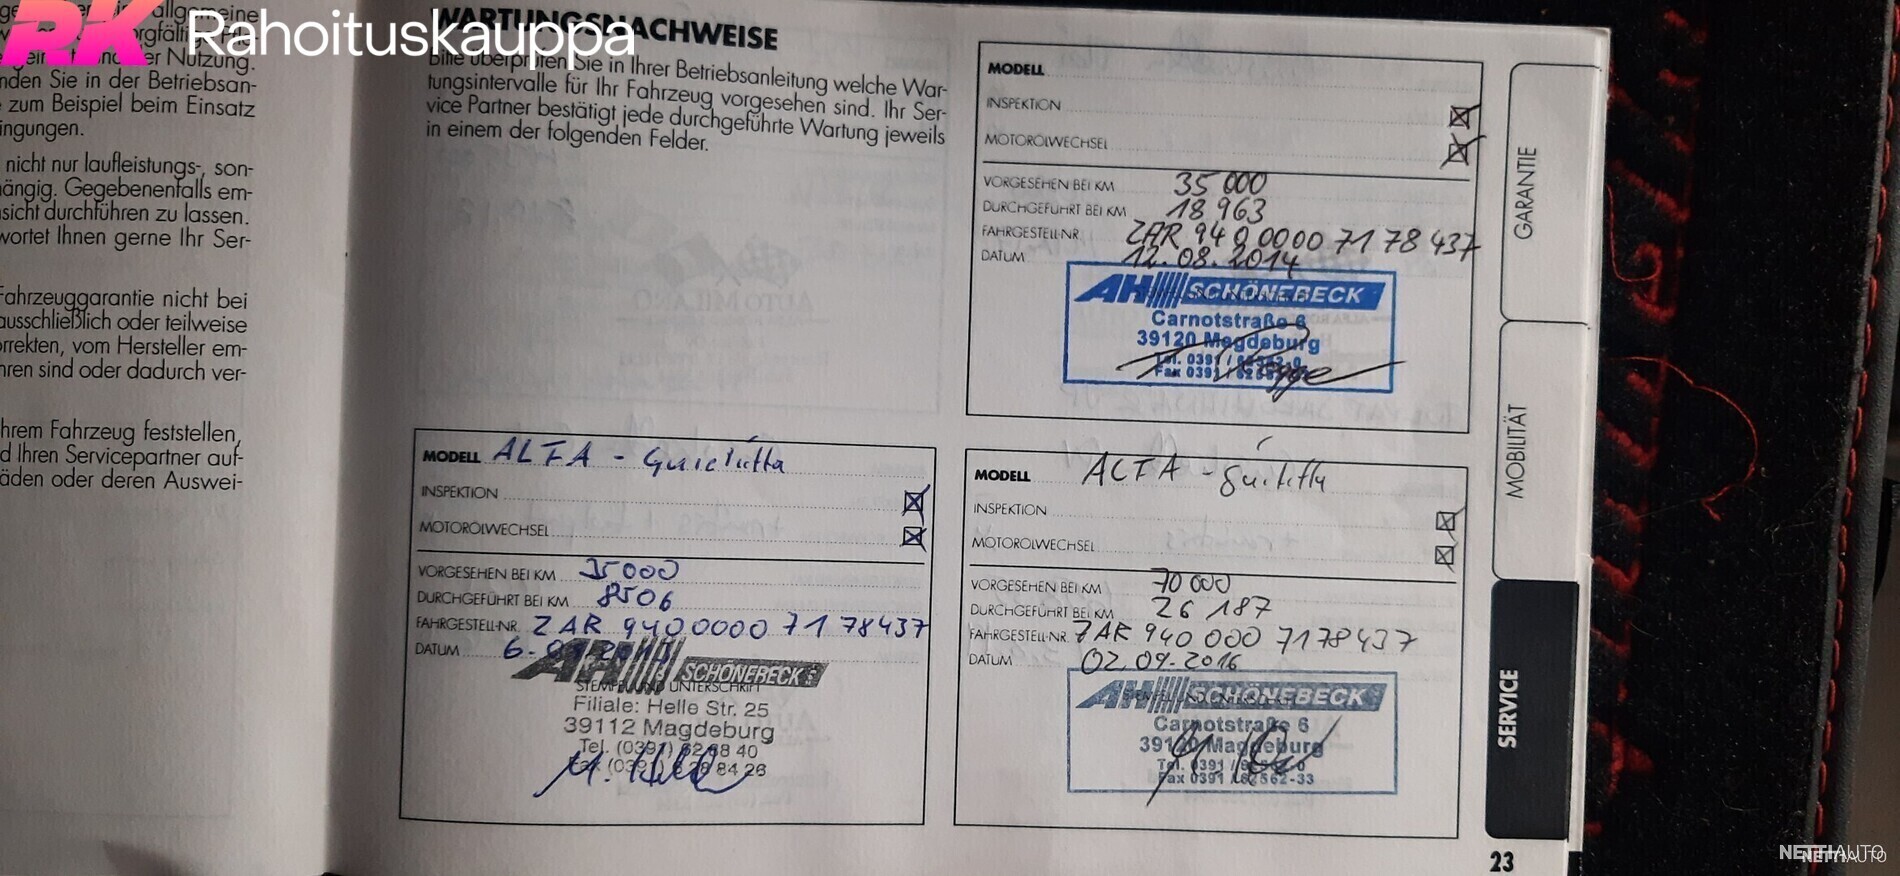 RK Rahoituskauppa
allgemeine
orgfältige
er Nutzung.
nden Sie in der Betriebsan-
zum Beispiel beim Einsatz
ingungen.
nicht nur laufleistungs-, son-
ängig. Gegebenenfalls em-
sicht durchführen zu lassen.
wortet Ihnen gerne Ihr Ser-
Fahrzeuggarantie nicht bei
ausschließlich oder teilweise
orrekten, vom Hersteller em-
hren sind oder dadurch ver-
hrem Fahrzeug feststellen,
d Ihren Servicepartner auf-
äden oder deren Auswei-
WARTUNGSNACHWEISE
Bitte überprüfen Sie in Ihrer Betriebsanleitung welche War-
tungsintervalle für Ihr Fahrzeug vorgesehen sind. Ihr Ser-
vice Partner bestätigt jede durchgeführte Wartung jeweils
in einem der folgenden Felder.
MODELL
INSPEKTION
MOTORÖLWECHSEL
VORGESEHEN BEI KM 35 000
DURCHGEFÜHRT BEI KM 18 963
FAHRGESTELL-NR. ZAR 940 0000 71 78 437
DATUM 12.08.2014
AH SCHÖNEBECK
Carnotstraße 6
39120 Magdeburg
Tel. 0391 /
Fax 0391 /
MODELL ALFA - Guiclutta
INSPEKTION
MOTORÖLWECHSEL
VORGESEHEN BEI KM 35000
DURCHGEFÜHRT BEI KM 8506
FAHRGESTELL-NR. ZAR 9400000 71 78437
DATUM 6.
AH SCHÖNEBECK
STEMPEL UND UNTERSCHRIFT
Filiale: Helle Str. 25
39112 Magdeburg
Tel. (0391) 62 88 40
Fax (0391) 6 28 84 26
MODELL ALFA -
INSPEKTION
MOTORÖLWECHSEL
VORGESEHEN BEI KM 70 000
DURCHGEFÜHRT BEI KM 26 187
FAHRGESTELL-NR. ZAR 940 000 7178437
DATUM 02.09.2016
AH SCHÖNEBECK
Carnotstraße 6
39120 Magdeburg
Tel. 0391 /
Fax 0391 / 82562-33
GARANTIE
MOBILITÄT
SERVICE
23
NETTIAUTO
NETTIAUTO